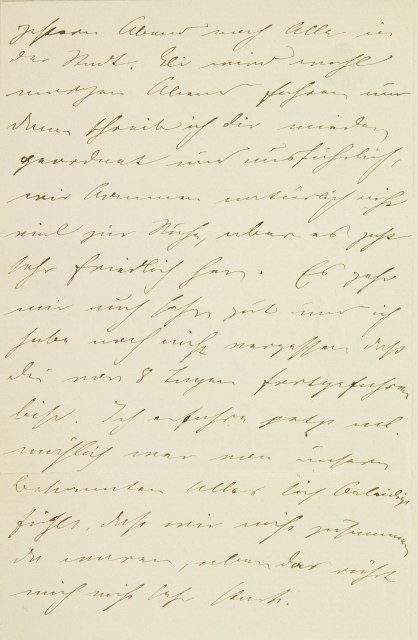 gestern Abend noch Alle in
der Stadt. Eli wird wohl
morgen Abend fahren und
dann schreib ich dir wieder
geordnet und ausführlich,
wir kommen natürlich nicht
viel zur Ruhe, aber es geht
sehr friedlich her. Es geht
mir auch sehr gut und ich
habe noch nicht vergessen daß
du vor 8 Tagen fortgefahren
bist. Ich erfahre jetzt all
mählich wer von unseren
Bekannten Alles sich beleidigt
fühlt, daß wir nicht zusammen
da waren, aber das rührt
mich nicht sehr stark.